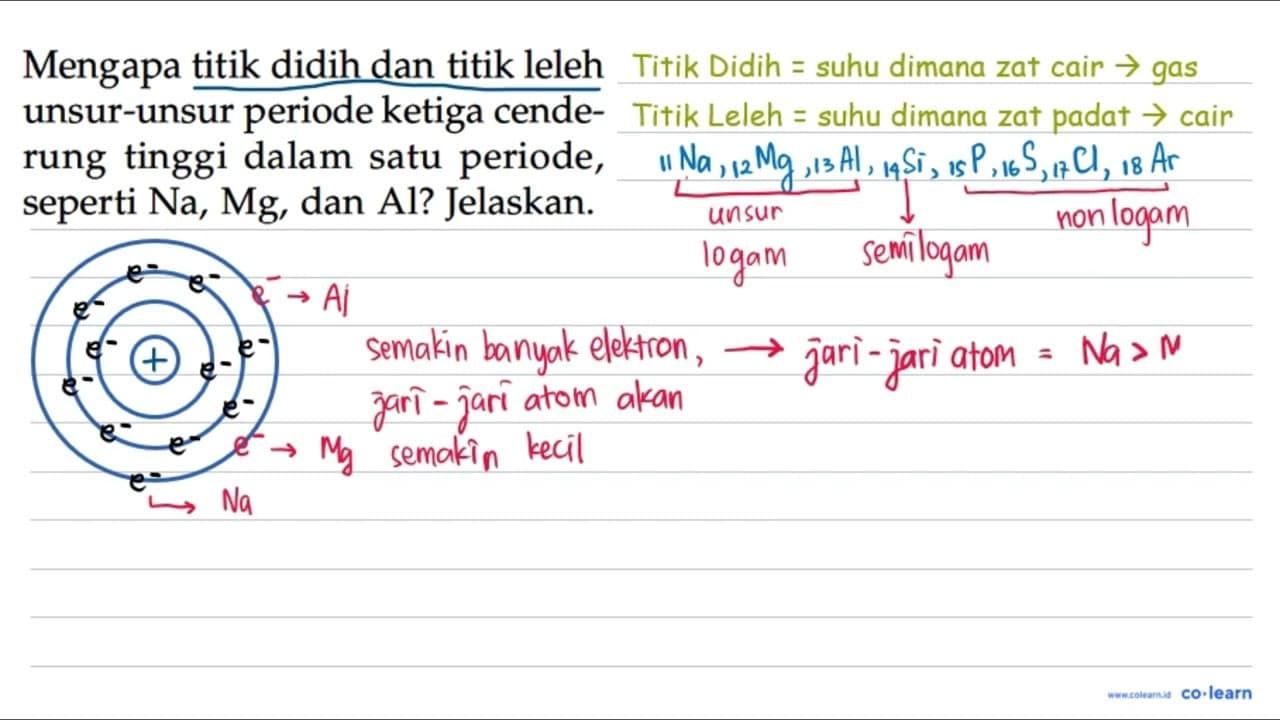 Mengapa titik didih dan titik leleh
unsur-unsur periode ketiga cende-
rung tinggi dalam satu periode,
seperti Na, Mg, dan Al? Jelaskan.
Titik Didih = suhu dimana zat cair → gas
Titik Leleh = suhu dimana zat padat → cair
₁₁Na, ₁₂Mg, ₁₃Al, ₁₄Si, ₁₅P, ₁₆S, ₁₇Cl, ₁₈Ar
unsur
logam
semilogam
non logam
e⁻ e⁻ e⁻ → Al
e⁻
e⁻ + e⁻ e⁻
e⁻ e⁻
e⁻ e⁻ e⁻ → Mg
e⁻
→ Na
semakin banyak elektron,
jari - jari atom akan
semakin kecil
→ jari - jari atom = Na > M
www.colearn.id co·learn